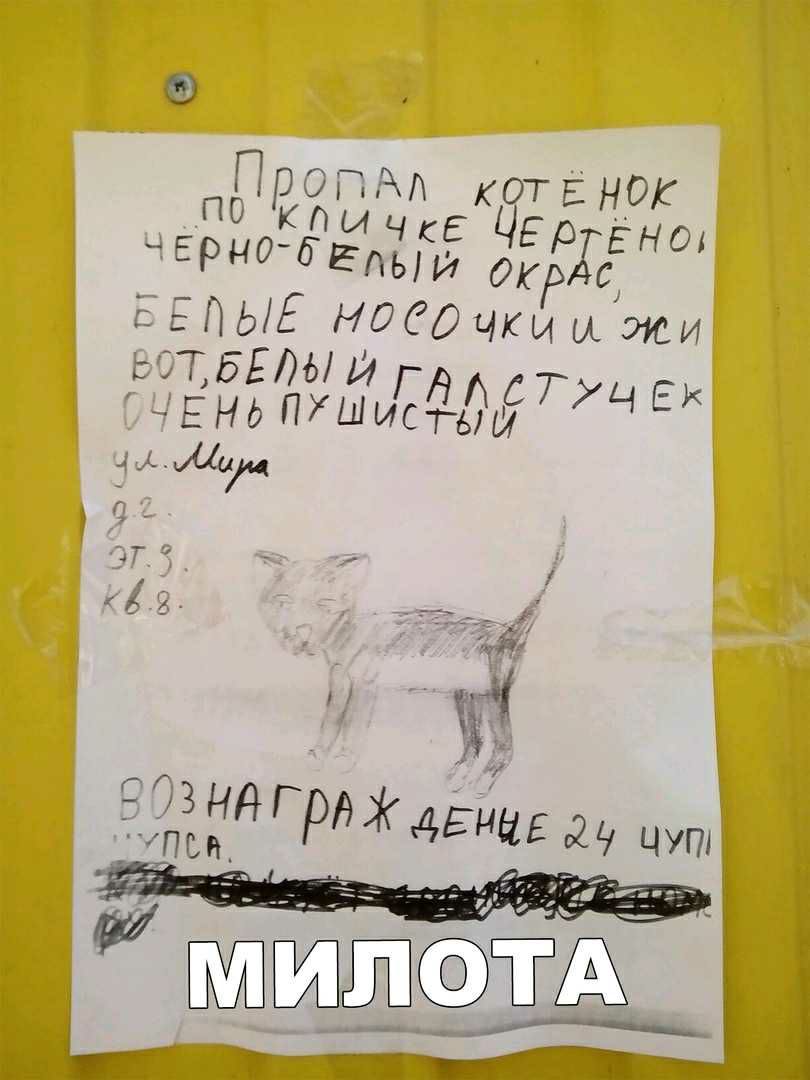 Пропал котёнок
по кличке Чертёно
чёрно-белый окрас,
белые носочки и жи
вот, белый галстучек
очень пушистый
ул. Мира
д.2.
эт.3.
кв.8.
Вознаграждение 24 чуп
чупса.
МИЛОТА